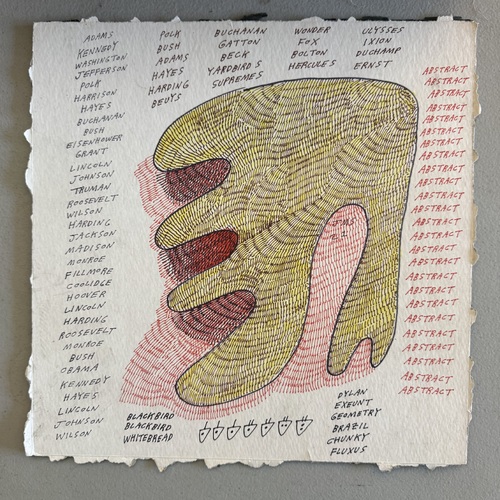 ADAMS
KENNEDY
WASHINGTON
JEFFERSON
POLK
HARRISON
HAYES
BUCHANAN
BUSH
EISENHOWER
GRANT
LINCOLN
JOHNSON
TRUMAN
ROOSEVELT
WILSON
HARDING
JACKSON
MADISON
MONROE
FILLMORE
COOLIDGE
HOOVER
LINCOLN
HARDING
ROOSEVELT
MONROE
BUSH
OBAMA
KENNEDY
HAYES
LINCOLN
JOHNSON
WILSON
POLK
BUSH
ADAMS
HAYES
HARDING
BEUYS
BUCHANAN
GATTON
BECK
YARDBIRDS
SUPREMES
WONDER
FOX
BOLTON
HERCULES
ULYSSES
IXION
DUCHAMP
ERNST
ABSTRACT
ABSTRACT
ABSTRACT
ABSTRACT
ABSTRACT
ABSTRACT
ABSTRACT
ABSTRACT
ABSTRACT
ABSTRACT
ABSTRACT
ABSTRACT
ABSTRACT
ABSTRACT
ABSTRACT
ABSTRACT
ABSTRACT
ABSTRACT
ABSTRACT
ABSTRACT
ABSTRACT
ABSTRACT
ABSTRACT
ABSTRACT
ABSTRACT
BLACKBIRD
BLACKBIRD
WHITEBREAD
DYLAN
EXEUNT
GEOMETRY
BRAZIL
CHUNKY
FLUXUS